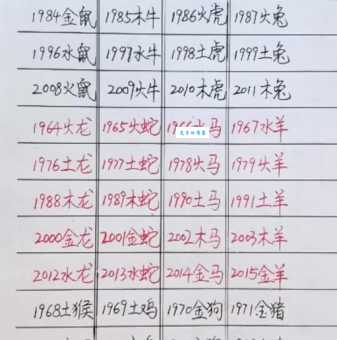 1984金鼠 1985木牛 1986火虎 1987火兔
1996水鼠 1997水牛 1998土虎 1999土兔
2008火鼠 2009火牛 2010木虎 2011木兔
1964火龙 1965火蛇 马 1967水羊
1976土龙 1977土蛇 1978火马 1979火羊
1988木龙 1989木蛇 1990土马 1991土羊
2000金龙 2001金蛇 2002木马 2003木羊
2012水龙 2013水蛇 2014金马 2015金羊
1968土猴 1969土鸡 1970金狗 1971金猪